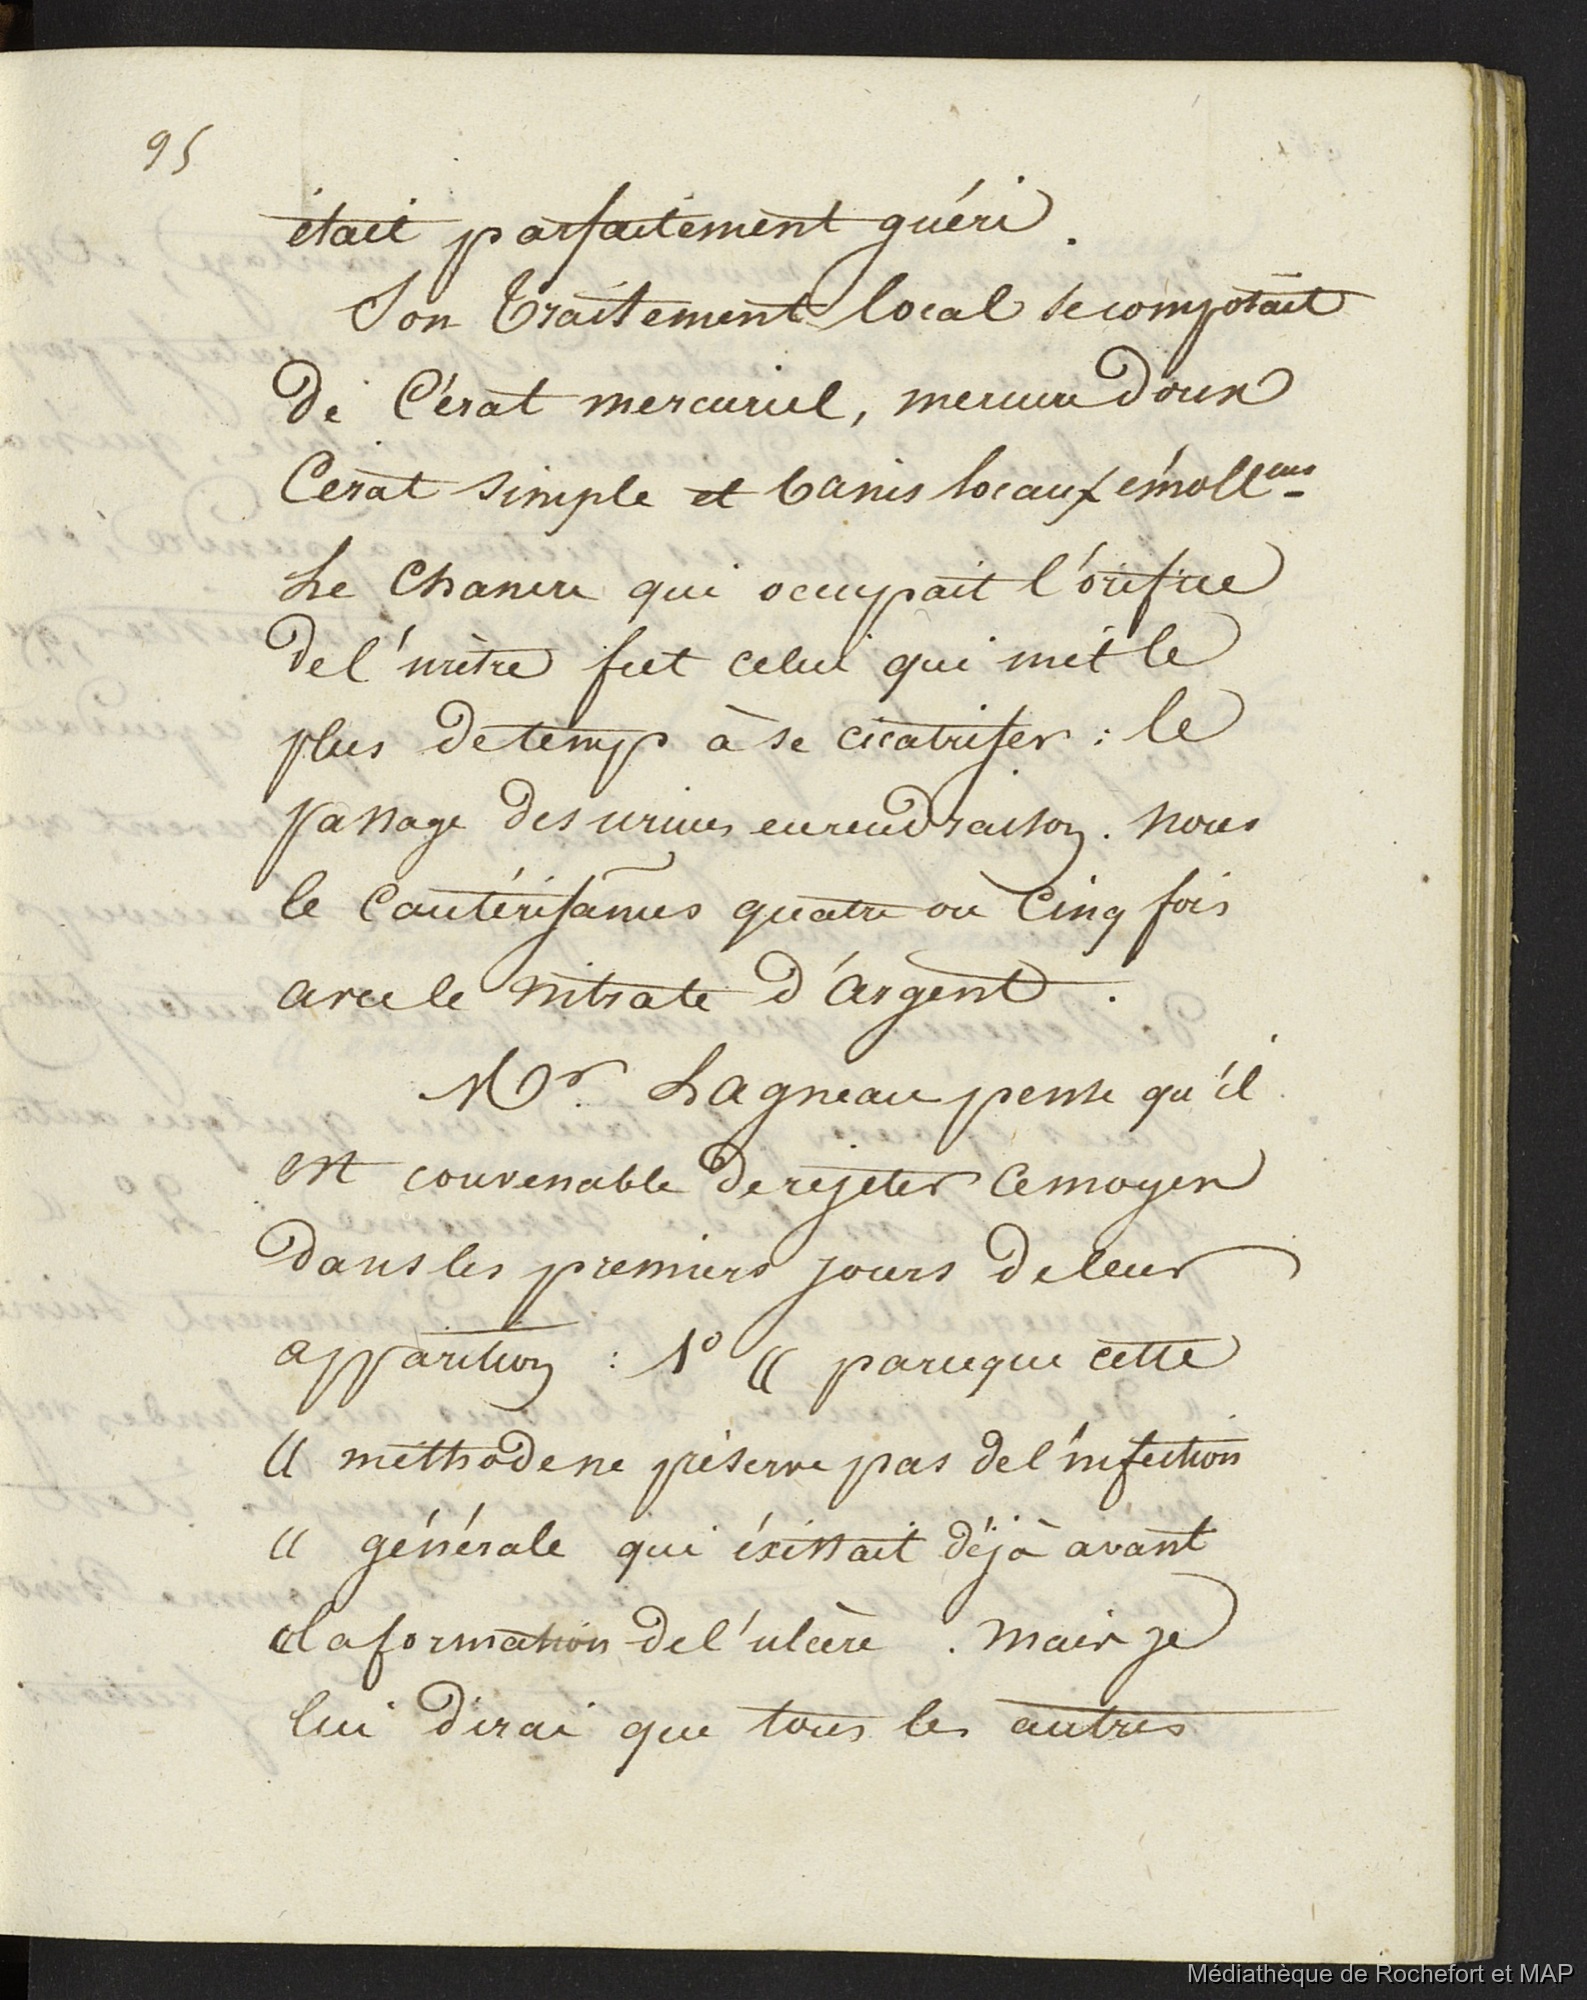 95
était parfaitement guéri.
Son traitement local se composait
de Cérat mercuriel, mercure doux
Cerat simple et bains locaux émoll.ens
Le Chancre qui occupait l'orifice
de l'urètre fut celui qui mit le
plus de temp à se cicatriser : le
passage des urines en rend raison. nous
le Cautérisâmes quatre ou Cinq fois
avec le nitrate d'argent.
Mr. Lagneau pense qu'il
est convenable de rejeter ce moyen
dans les premiers jours de leur
apparition : 1º « parceque cette
« méthode ne préserve pas de l'infection
« générale qui éxistait déjà avant
la formation de l'ulcère. Mais je
lui dirai que tous les autres
Médiathèque de Rochefort et MAP